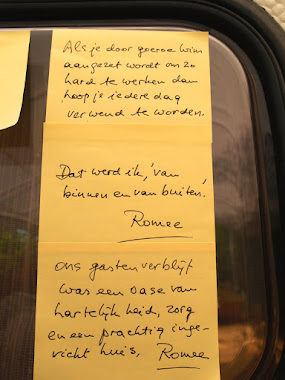 Als je door goeroe Wim
aangezet wordt om zo
hard te werken dan
hoop je iedere dag
verwend te worden.
Dat werd ik, 'van
binnen en van buiten!
Romee
Ons gastenverblijf
was een oase van
hartelijkheid, zorg
en een prachtig inge-
richt huis, Romee